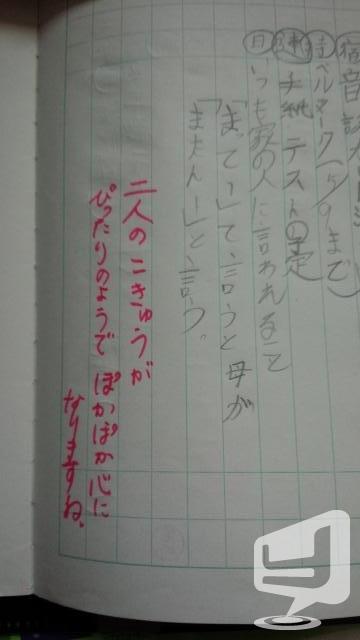 宿 音読
ベルマーク(5/9まで)
手紙 テストの予定
日 いつも家の人に言われること
「まってー」て、言うと母が
「またんー」と、言う。
二人のこきゅうが
ぴったりのようで ぽかぽか心に
なりますね。